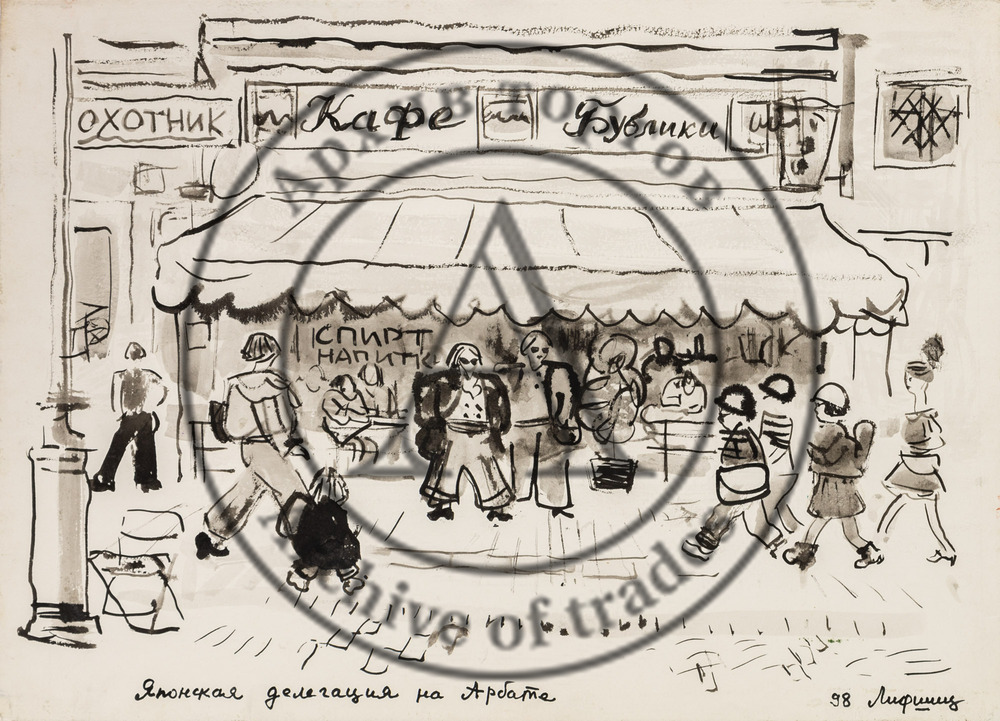 ОХОТНИК
Кафе
Бублики
СПИРТ
НАПИТК
Архив Торгов
Archive of trade
Японская делегация на Арбате
98 Лифшиц